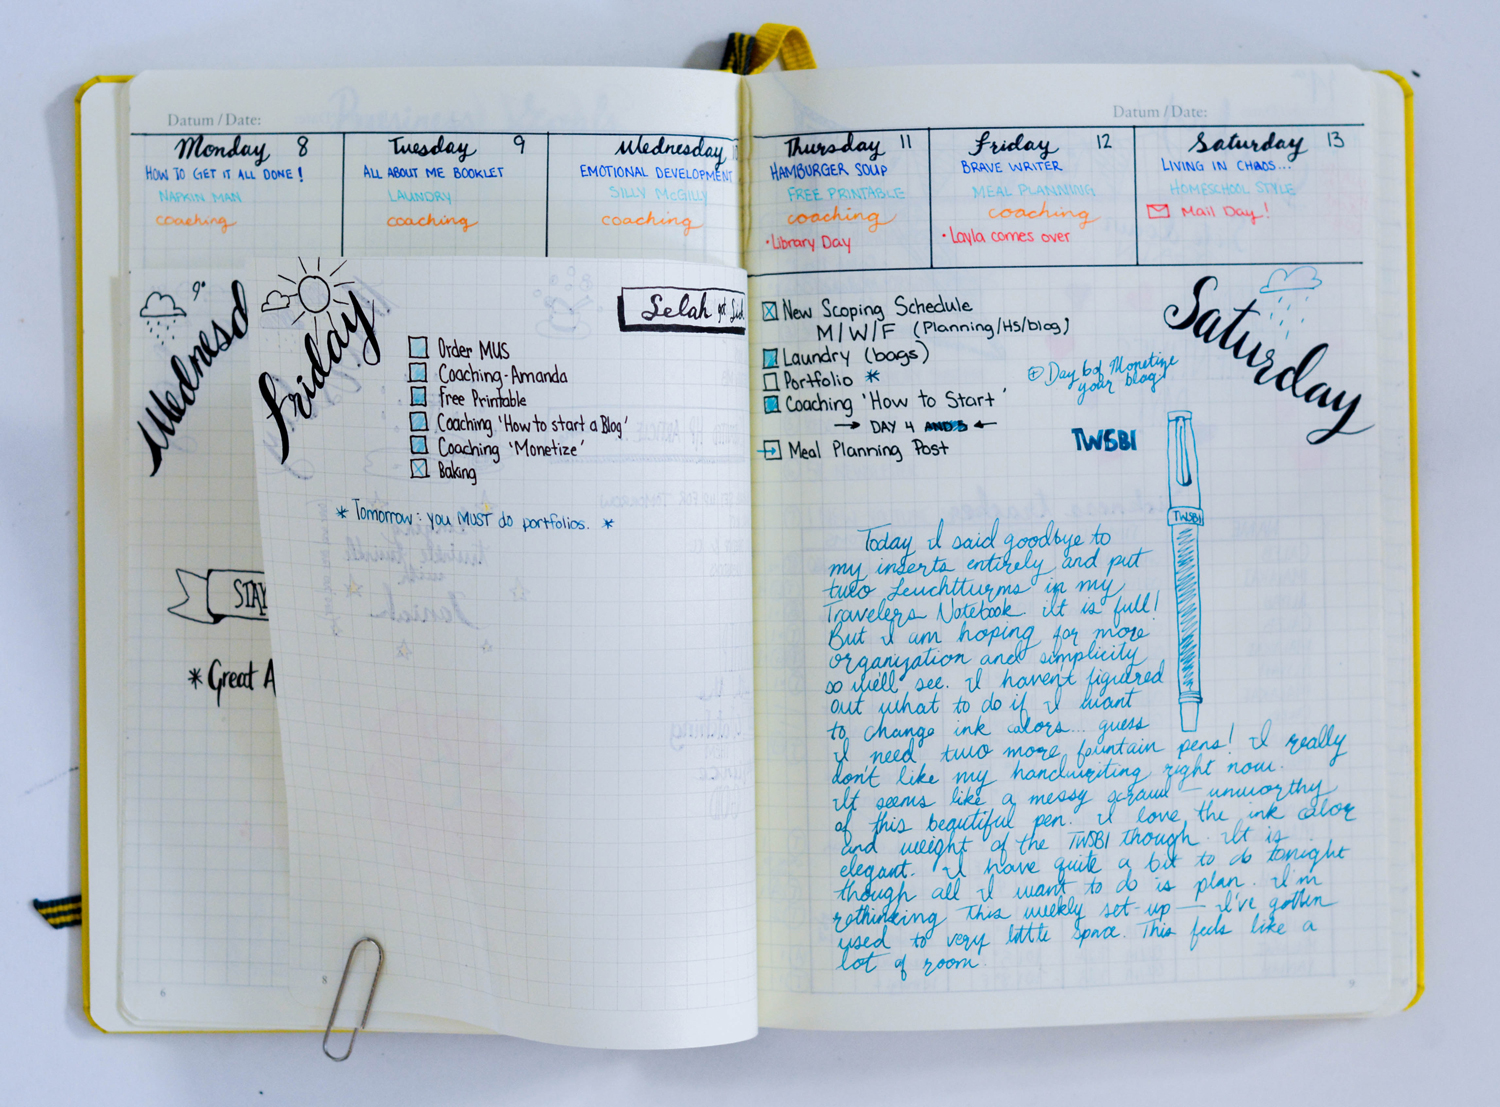 Datum / Date:
Monday 8
HOW TO GET IT ALL DONE!
NAPKIN MAN
coaching
Tuesday 9
ALL ABOUT ME BOOKLET
LAUNDRY
coaching
Wednesday
EMOTIONAL DEVELOPMENT
SILLY McGILLY
coaching
Datum / Date:
Thursday 11
HAMBURGER SOUP
FREE PRINTABLE
coaching
• Library Day
Friday 12
BRAVE WRITER
MEAL PLANNING
coaching
• Layla comes over
Saturday 13
LIVING IN CHAOS...
HOMESCHOOL STYLE
Mail Day!
9°
Wednesd
STAY
* Great A
6
Friday
Selah
Order MUS
Coaching-Amanda
Free Printable
Coaching 'How to start a Blog'
Coaching 'Monetize'
Baking
* Tomorrow: you MUST do portfolios. *
8
New Scoping Schedule
M/W/F (Planning/HS/blog)
Laundry (bags)
Portfolio *
Coaching 'How to Start'
→ DAY 4 AND 5 ←
Meal Planning Post
Day 6 of Monetize
your blog!
Saturday
TWSBI
TWSBI
Today I said goodbye to
my inserts entirely and put
two Leuchtturms in my
Travelers Notebook. It is full!
But I am hoping for more
organization and simplicity
so we'll see. I haven't figured
out what to do if I want
to change ink colors... guess
I need two more fountain pens! I really
don't like my handwriting right now.
It seems like a messy scrawl — unworthy
of this beautiful pen. I love the ink color
and weight of the TWSBI though. It is
elegant. I have quite a bit to do tonight
though all I want to do is plan. I'm
rethinking this weekly set-up — I've gotten
used to very little space. This feels like a
lot of room.
9